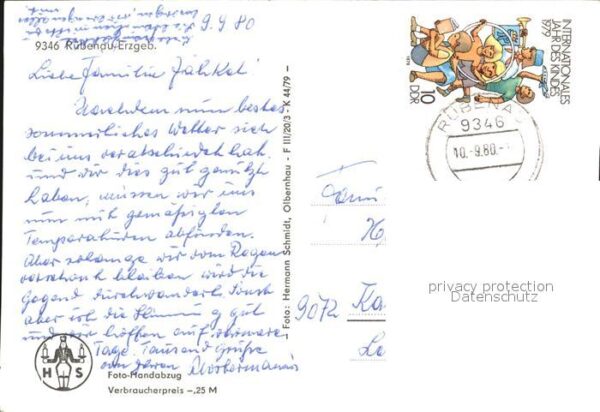 9.9.80
9346 Rübenau-Erzgeb.
Liebe Familie
Nachdem nun bestes
sommerliches Wetter sich
bei uns verabschiedet hat,
und wir dies gut genützt
haben, müssen wir uns
nun mit gemäßigten
Temperaturen abfinden.
Aber solange wir vom Regen
verschont bleiben wird die
Gegend durchwandert. Sonst
aber ist die Stimmung gut
und wir hoffen auf wärmere
Tage. Tausend Grüße
von Ihren
H S
Foto-Handabzug
Verbraucherpreis -,25 M
Foto: Hermann Schmidt, Olbernhau - F III/20/3 - K 44/79 -
INTERNATIONALES
JAHR DES KINDES
1979
10 DDR
RÜBENAU
9346
10.-9.80.-
Fami
9072 Ka
privacy protection
Datenschutz